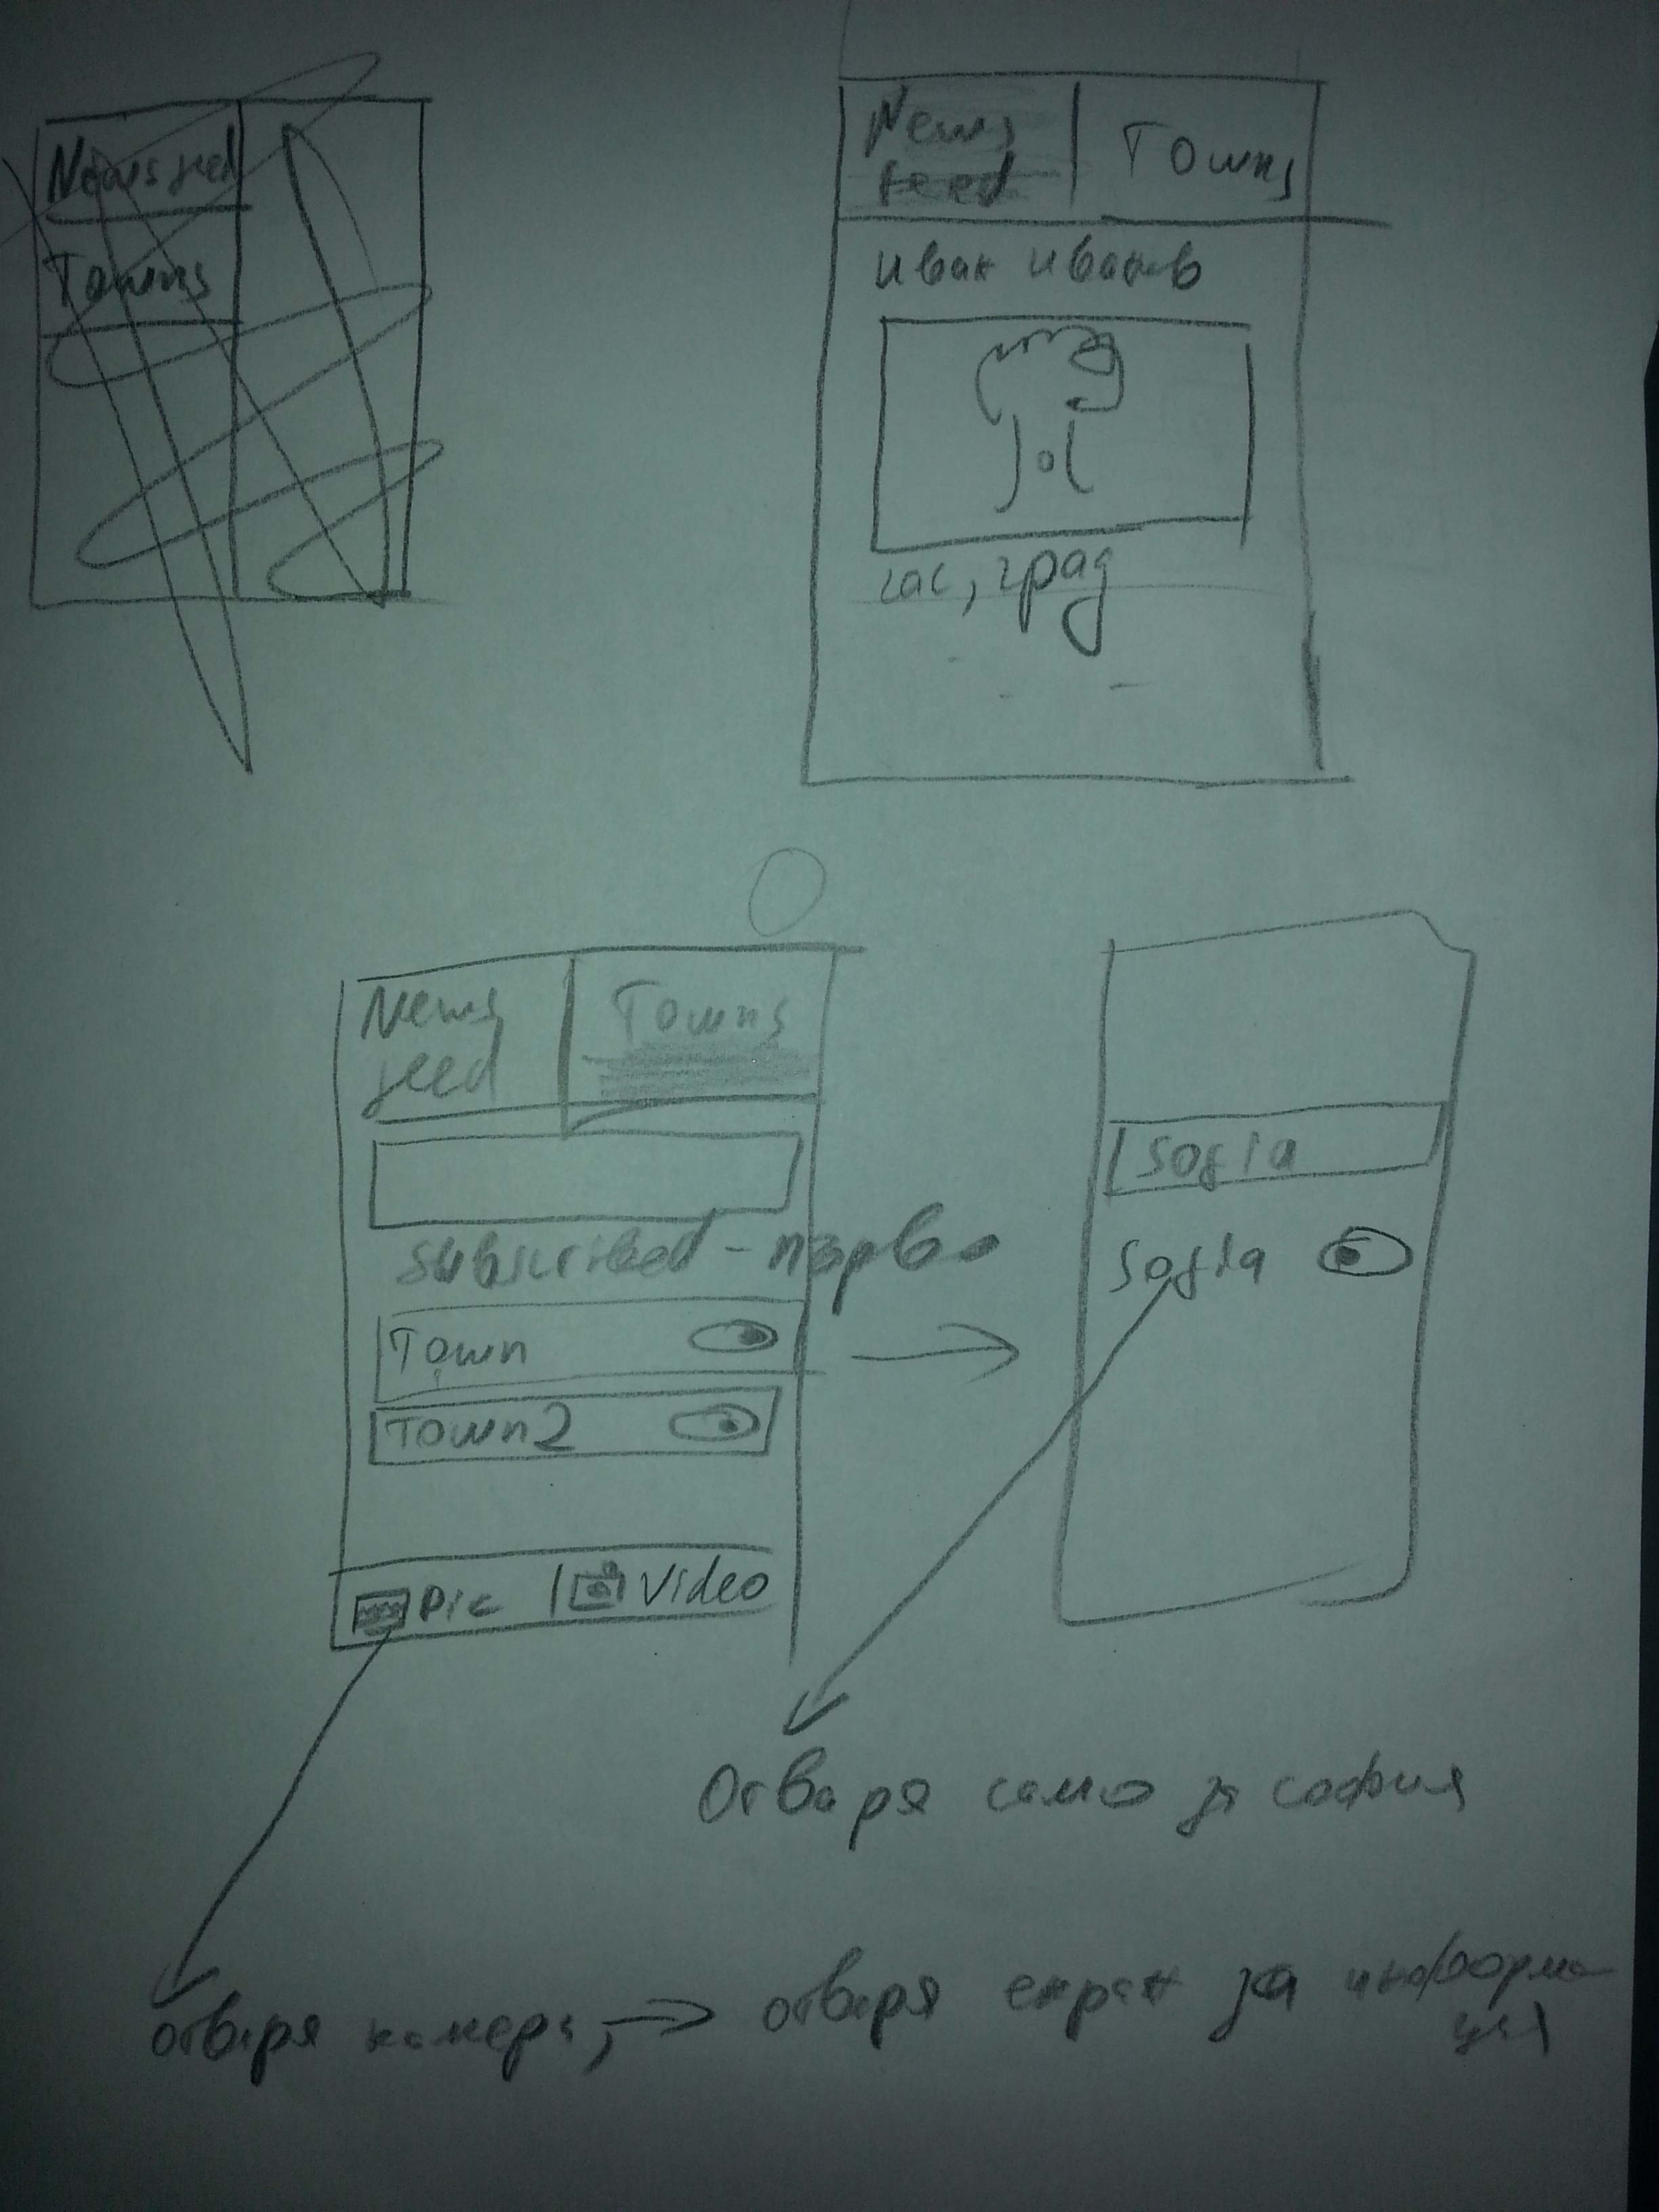 Newsfeed
Towns
News
feed
Towns
Иван Иванов
час, град
News
feed
Towns
Subscribed - първо
Town
Town2
Pic
Video
Sofia
Sofia
Отваря само за софия
отваря камера, → отваря екран за информа
ция